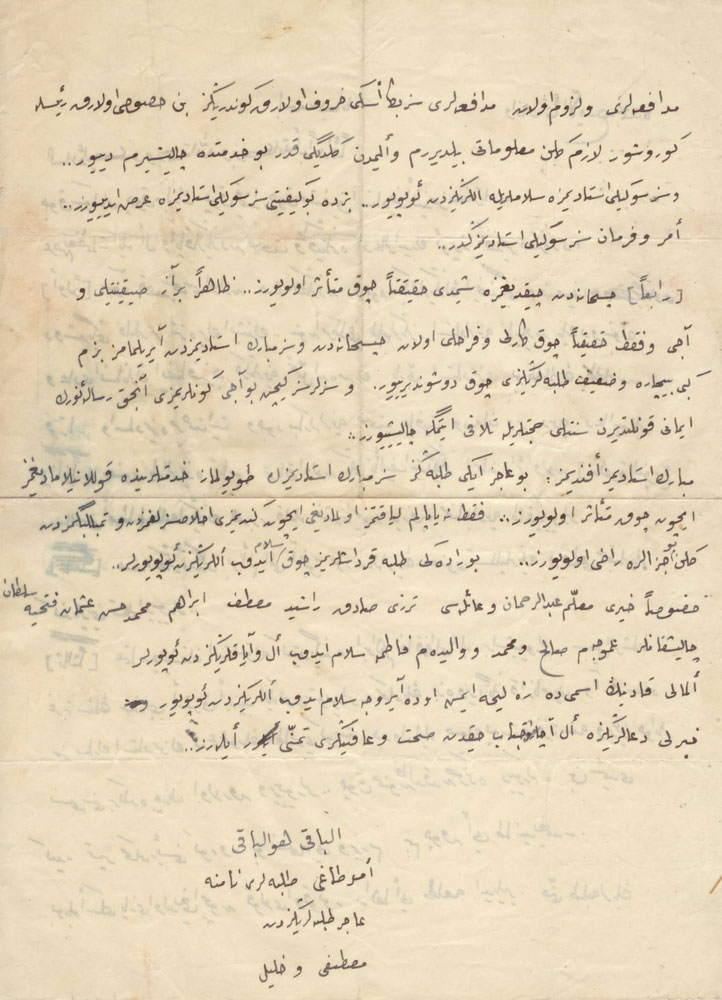 مدافعه‌لری ولزوم اولان مدافعه‌لری سز بطأ أسكی حروف اولارق كوندریڭز بن خصوصی اولارق رئیسله
كوروشور لازم كلن معلوماتی بیلدیررم وألیمدن كلدیگی قدر بو خدمتده چالیشیرم دییور..
وسز سوكیلی استادیمزه سلاملریله اللریڭزدن ئوپویور.. بزده بو كیفیتی سز سوكیلی استادیمزه عرض ایدییورز..
أمر وفرمان سز سوكیلی استادیمزكدر..
[رابعاً] حبسخانه‌دن چیقدیغمزه شیمدی حقیقتاً چوق متأثر اولویورز.. ظاهراً برآز صیقینتیلی و
آجی وفقط حقیقتاً چوق طاتلی وفراحلی اولان حبسخانه‌دن وسز مبارك استادیمزدن آیریلمامز بزم
كبی بیچاره وضعیف طلبه‌لریڭزی چوق دوشوندیرییور. وسزلرسز كیچن بو آجی كونلریمزی آنجق رسالۀ نورك
ایمانی قوتلندیرن سنتلی صحبتلریله تلافی ایتمگه چالیشییورز..
مبارك استادیمز أفندیمز؛ بو عاجز ایكی طلبه‌ڭز سز مبارك استادیمزك طویولماز خدمتلریڭزده قوللانیلامادیغمز
ایچون چوق متأثر اولویورز.. فقط نه یاپالم لیاقتمز اولمادیغی ایچون كندیمزی اخلاصسزلغمزدن و تمبللگمزدن
كلن بو جزالره راضی اولویورز.. بوراده‌كی طلبه قرداشلریمز چوق سلام ایدوب أللریڭزدن ئوپویورلر..
خصوصاً خیری معلّم عبدالرحمان وعائله‌سی ترزی صادق راشد مصطفی ابراهیم محمد حسن عثمان فتحیه سلطان
چالیشقانلر عموجه‌م صالح ومحمد ووالیده‌م فاطمه سلام ایدوب أل وآیاقلریڭزدن ئوپرلر
ألمالی قادینڭ اسمی ده زلیحه ایمش اوده آیریجه سلام ایدوب أللریڭزدن ئوپویور
خیرلی دعالریڭزه أل آچار جناب حقدن صحت وعافیتلر تمنّی أیلرز..
الباقی هو الباقی
أمیرطاغی طلبه‌لری نامنه
عاجز طلبه‌لریڭزدن
مصطفی و خلیل